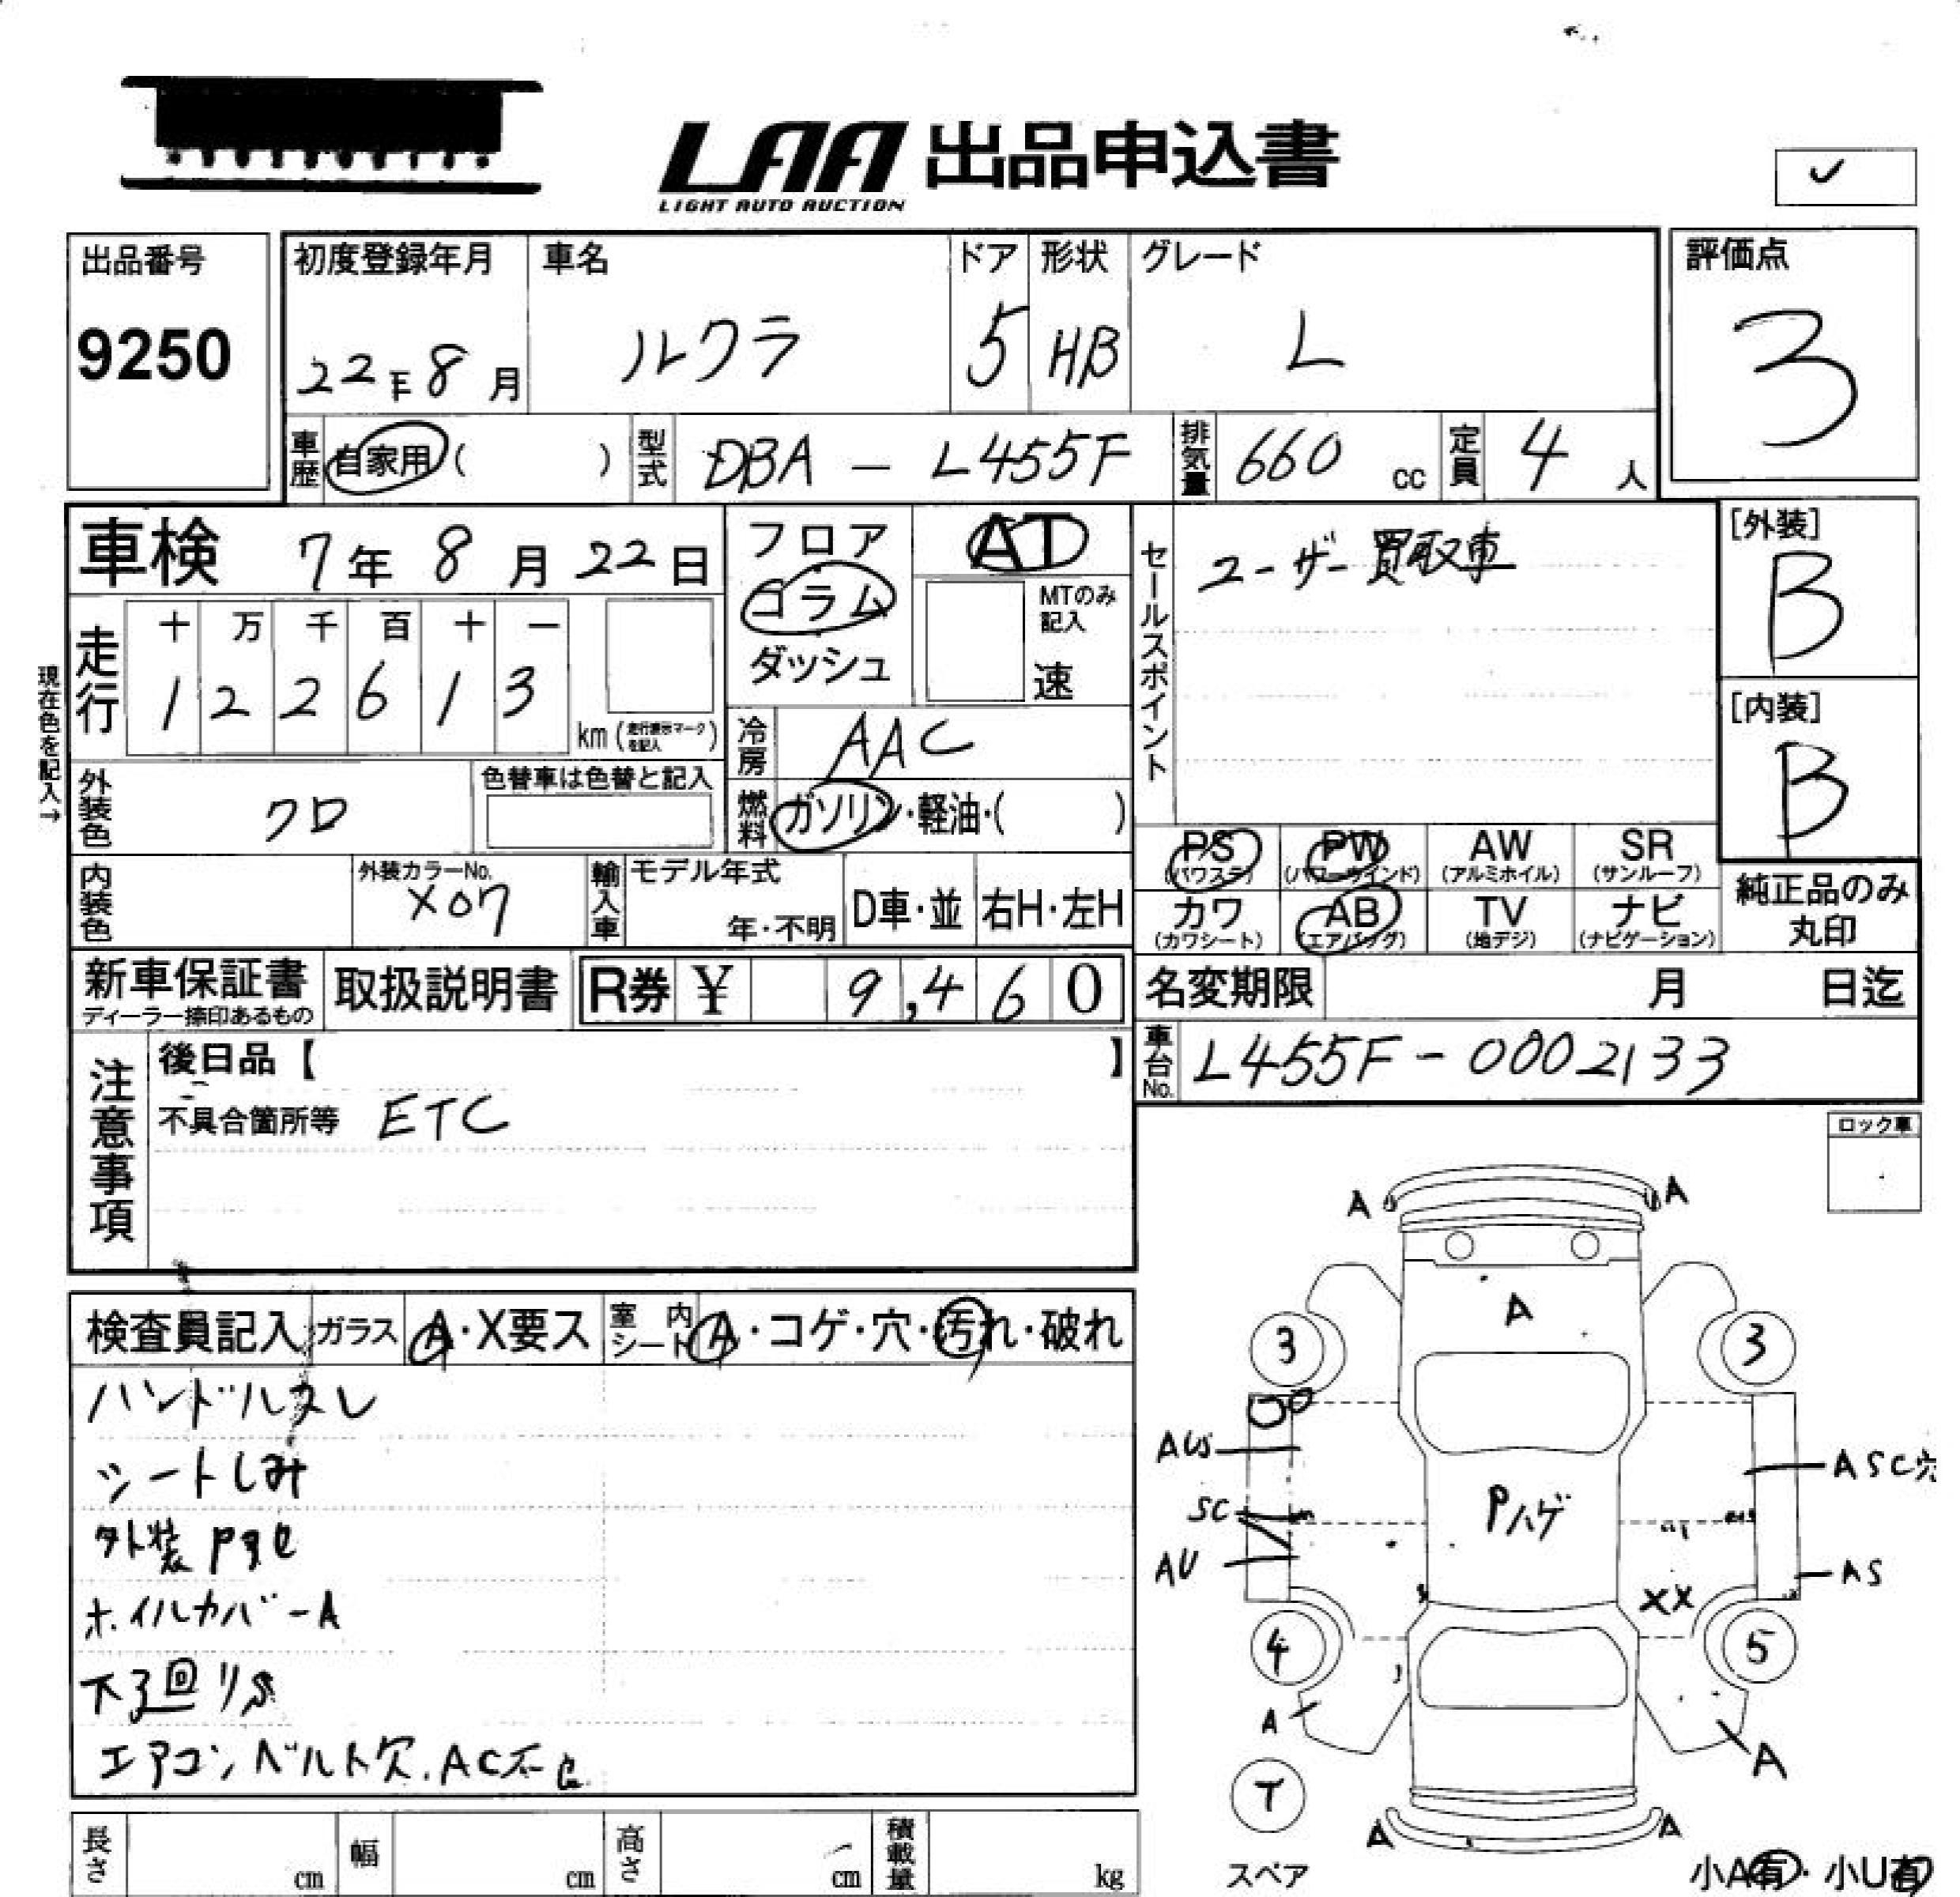 LAA 出品申込書
LIGHT AUTO AUCTION
✓
出品番号
9250
初度登録年月
22年8月
車名
ルクラ
ドア
5
形状
HB
グレード
L
評価点
3
車歴 自家用( )
型式 DBA - L455F
排気量 660 cc
定員 4 人
車検 7年 8月 22日
フロア
コラム
ダッシュ
AT
MTのみ記入
速
セールスポイント
ユーザー買取車
[外装]
B
[内装]
B
現在色を記入→
走行
十 万 千 百 十 一
1 2 2 6 1 3
km (走行表示マークを記入)
冷房 AAC
燃料 ガソリン・軽油・( )
外装色 クロ
色替車は色替と記入
内装色
外装カラーNo.
X07
輸入車
モデル年式
年・不明
D車・並
右H・左H
PS (パワステ)
PW (パワーウインド)
AW (アルミホイル)
SR (サンルーフ)
カワ (カワシート)
AB (エアバッグ)
TV (地デジ)
ナビ (ナビゲーション)
純正品のみ
丸印
新車保証書
ディーラー捺印あるもの
取扱説明書
R券 ¥ 9,460
名変期限 月 日迄
車台No. L455F-0002133
注意事項
後日品【 】
不具合箇所等 ETC
ロック車
検査員記入
ガラス A・X要ス
室内シート A・コゲ・穴・汚れ・破れ
ハンドルスレ
シートしみ
外装
ホイルカバーA
下廻りS
エアコンベルト欠.AC不
A A
A
3 3
AU
ASC穴
SC
Pハゲ
AU
AS
XX
4 5
A
A
T
スペア
A A
小A有・小U有
長さ cm
幅 cm
高さ cm
積載量 kg